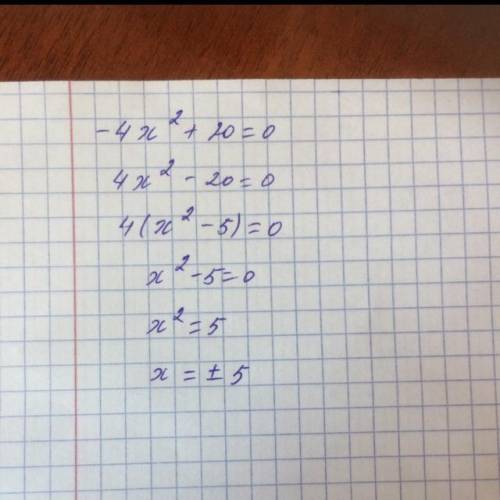 -4x² + 20 = 0
4x² - 20 = 0
4(x² - 5) = 0
x² - 5 = 0
x² = 5
x = ± 5